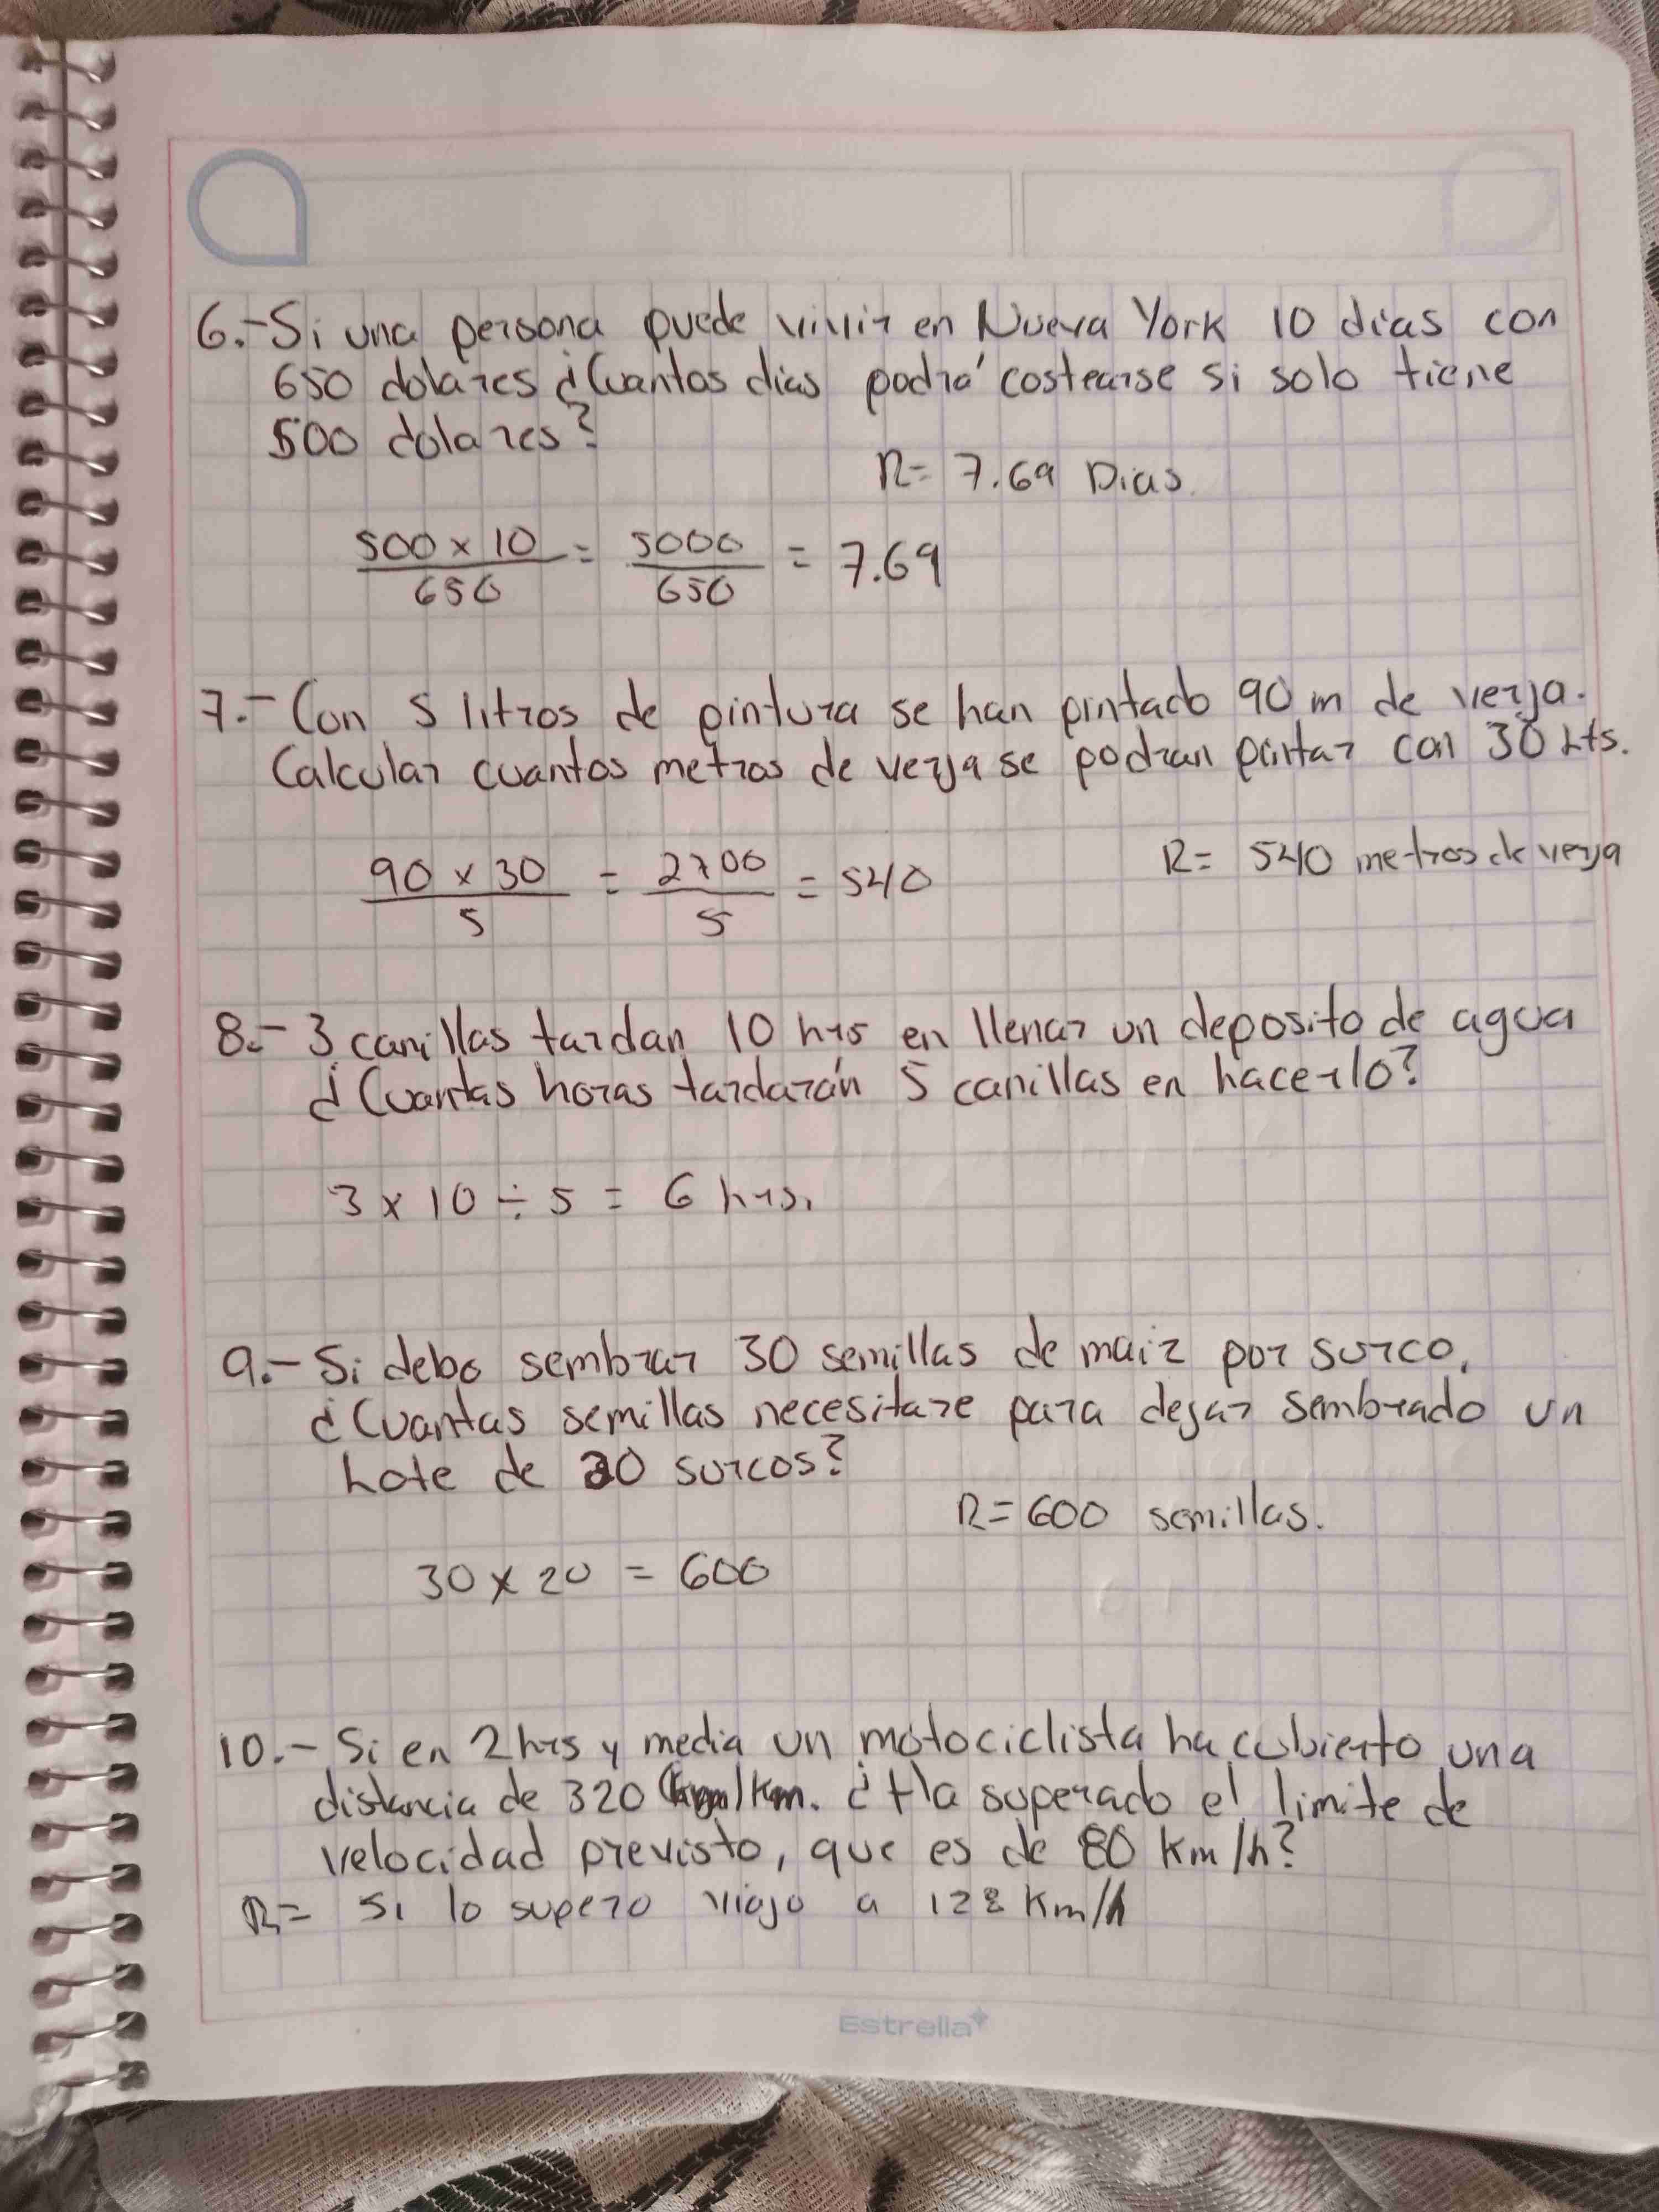 6.- Si una persona puede vivir en Nueva York 10 dias con
650 dolares ¿Cuantos dias podrá costearse si solo tiene
500 dolares?
R= 7.69 Dias.
500 x 10 / 650 = 5000 / 650 = 7.69
7.- Con 5 litros de pintura se han pintado 90 m de verja.
Calcular cuantos metros de verja se podran pintar con 30 Lts.
R= 540 metros de verja
90 x 30 / 5 = 2700 / 5 = 540
8.- 3 canillas tardan 10 hrs en llenar un deposito de agua
¿Cuantas horas tardarán 5 canillas en hacerlo?
3 x 10 ÷ 5 = 6 hrs.
9.- Si debo sembrar 30 semillas de maiz por surco,
¿Cuantas semillas necesitare para dejar sembrado un
Lote de 20 surcos?
R= 600 semillas.
30 x 20 = 600
10.- Si en 2 hrs y media un motociclista ha cubierto una
distancia de 320 km. ¿Ha superado el limite de
velocidad previsto, que es de 80 Km/h?
R= Si lo supero viajo a 128 Km/h
Estrella